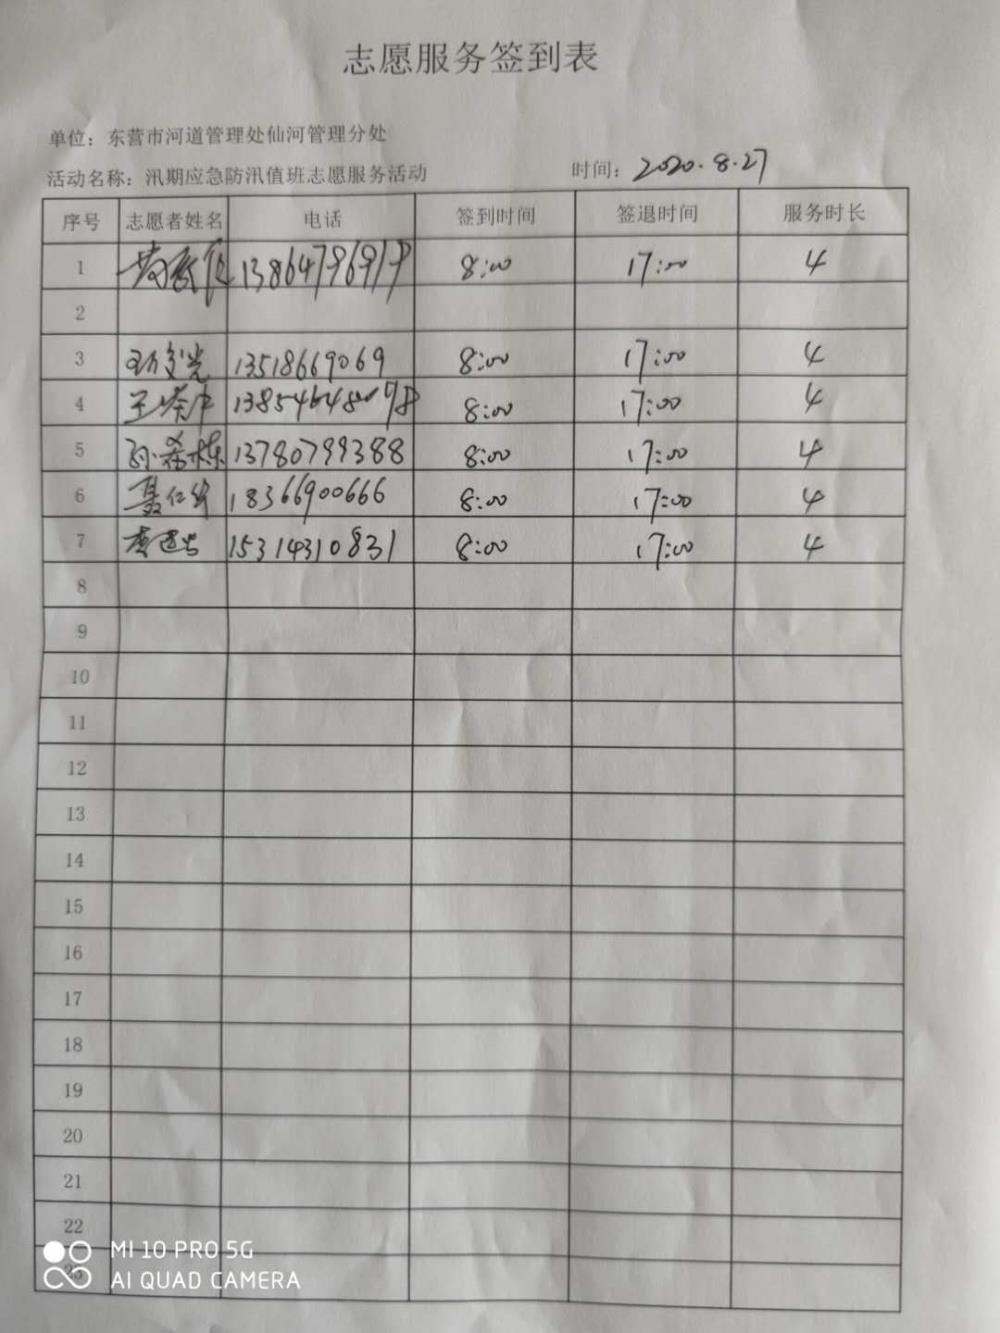 志愿服务签到表
单位：东营市河道管理处仙河管理分处
活动名称：汛期应急防汛值班志愿服务活动 时间：2020.8.27
序号 志愿者姓名 电话 签到时间 签退时间 服务时长
1 8:00 17:00 4
2
3 13518669069 8:00 17:00 4
4 8:00 17:00 4
5 孙希栋 13780799388 8:00 17:00 4
6 18366900666 8:00 17:00 4
7 15314310831 8:00 17:00 4
8
9
10
11
12
13
14
15
16
17
18
19
20
21
22
23
MI 10 PRO 5G
AI QUAD CAMERA